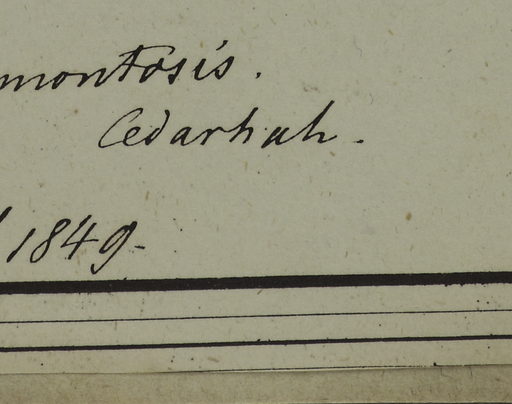 montosis.
Cedarhult.
1849-